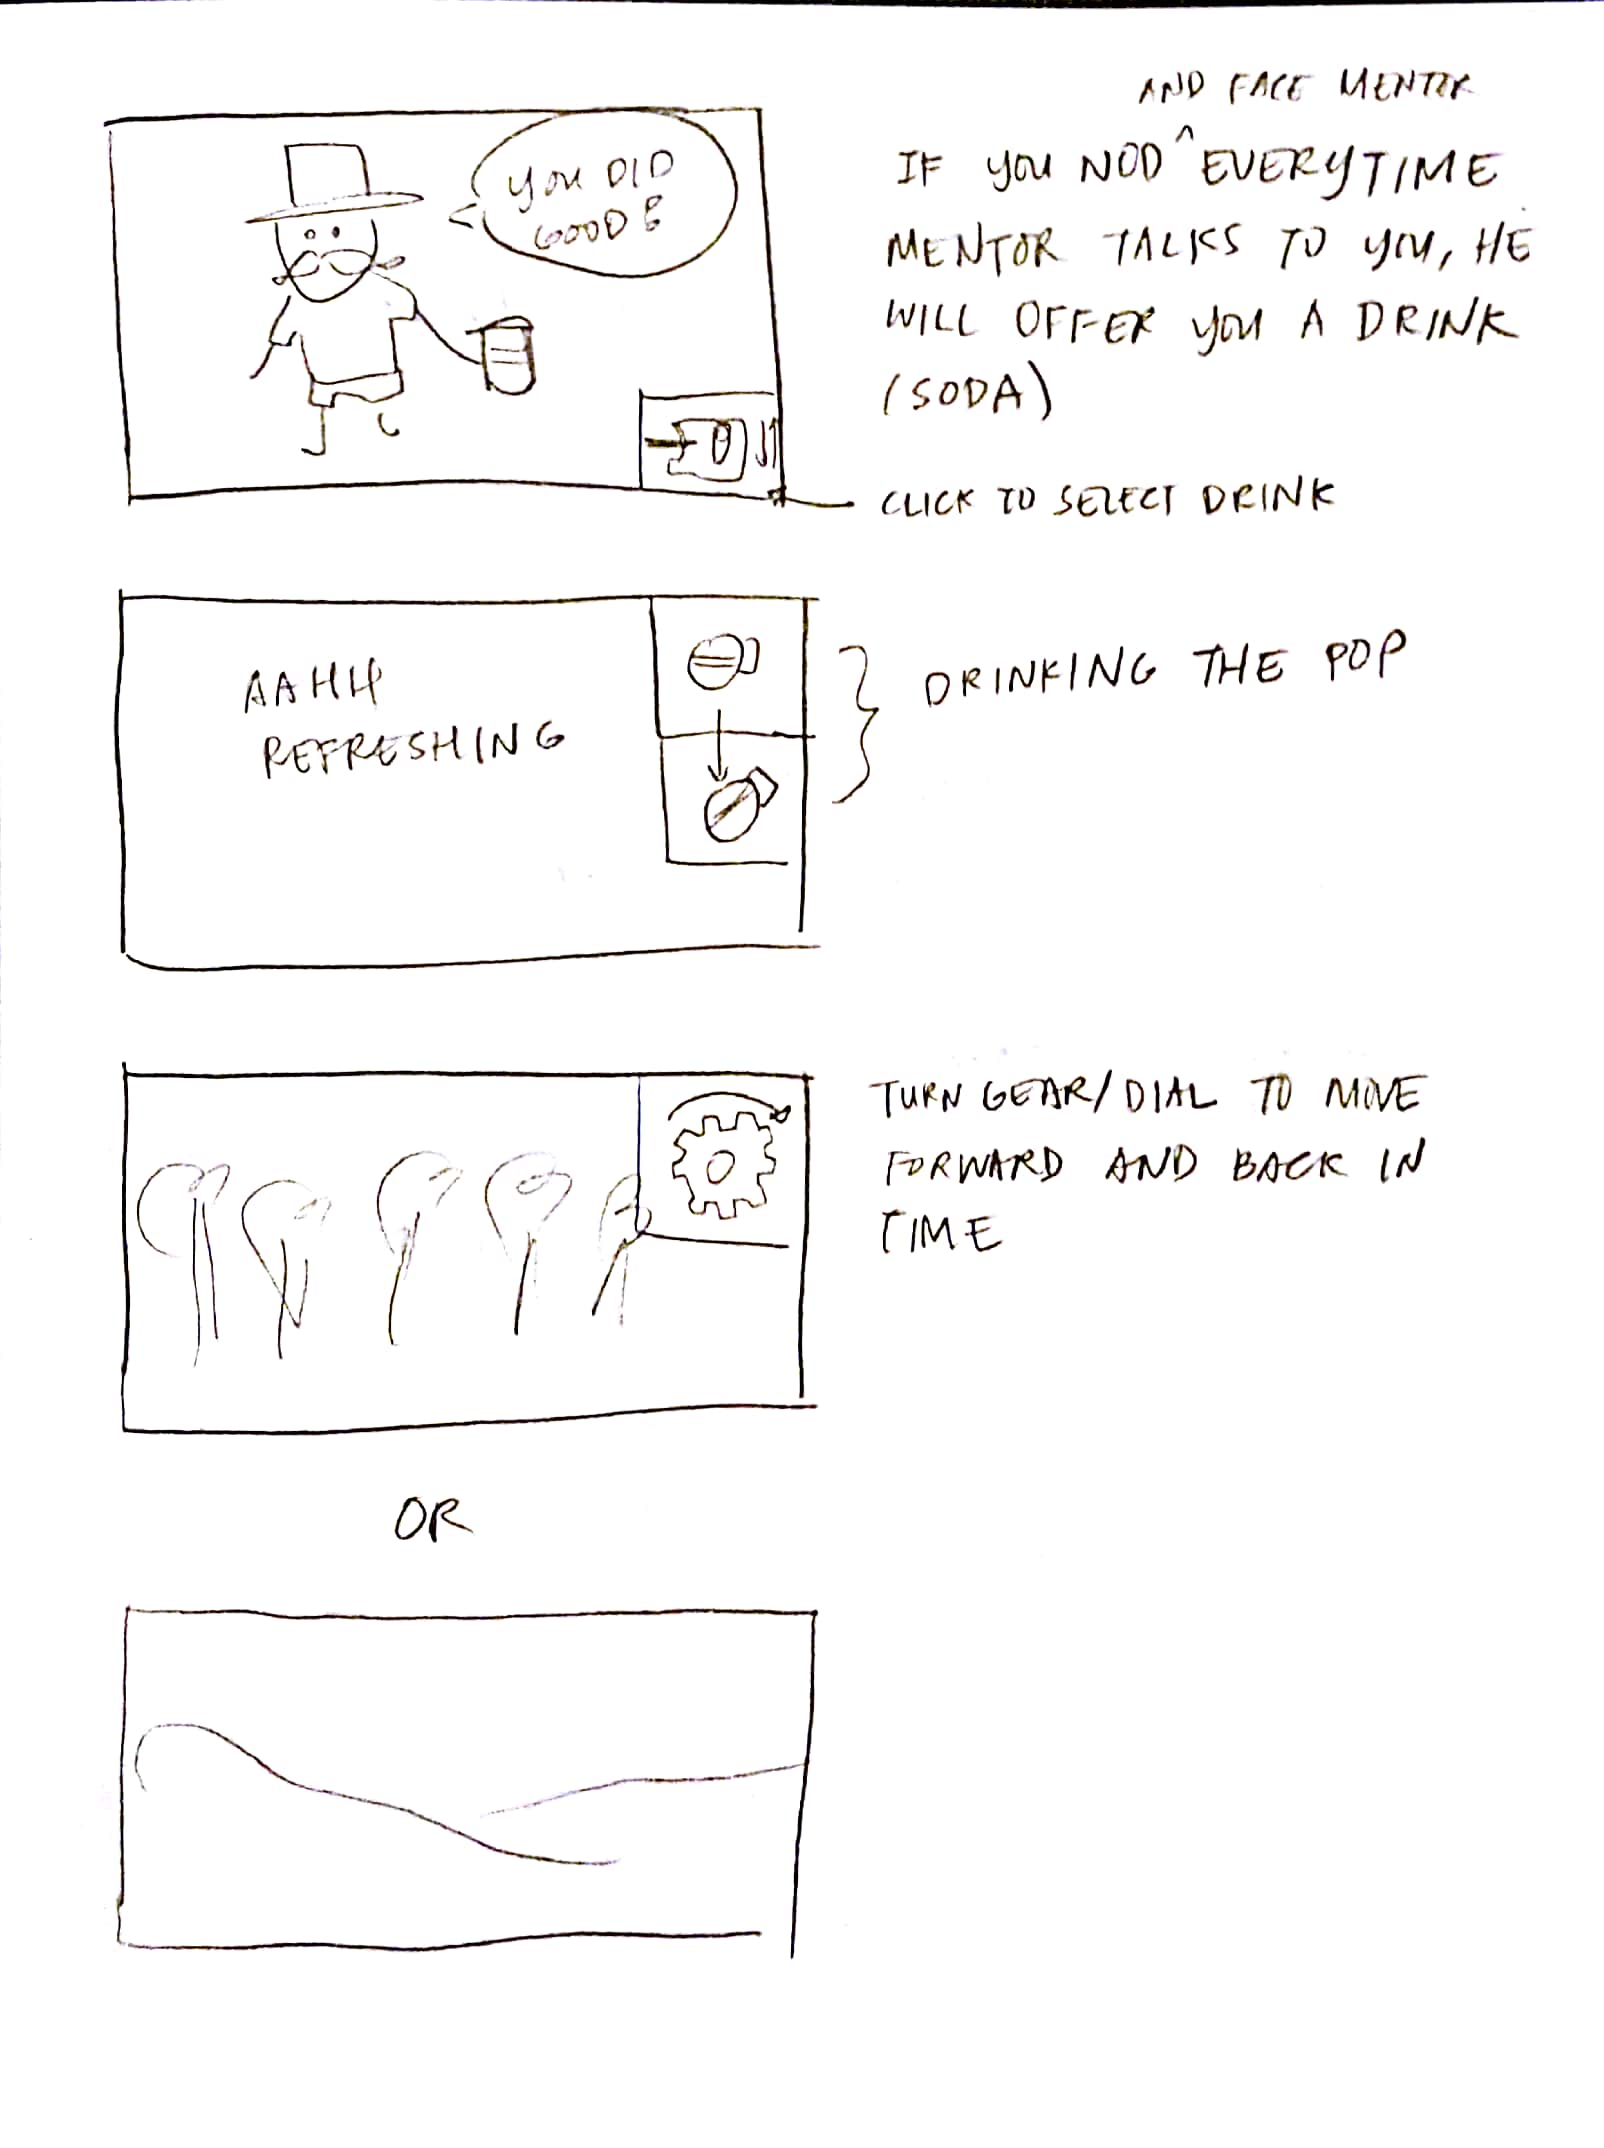 YOU DID
GOOD!
AND FACE MENTOR
IF YOU NOD ^ EVERYTIME
MENTOR TALKS TO YOU, HE
WILL OFFER YOU A DRINK
(SODA)
CLICK TO SELECT DRINK
AAHH
REFRESHING
DRINKING THE POP
TURN GEAR/DIAL TO MOVE
FORWARD AND BACK IN
TIME
OR